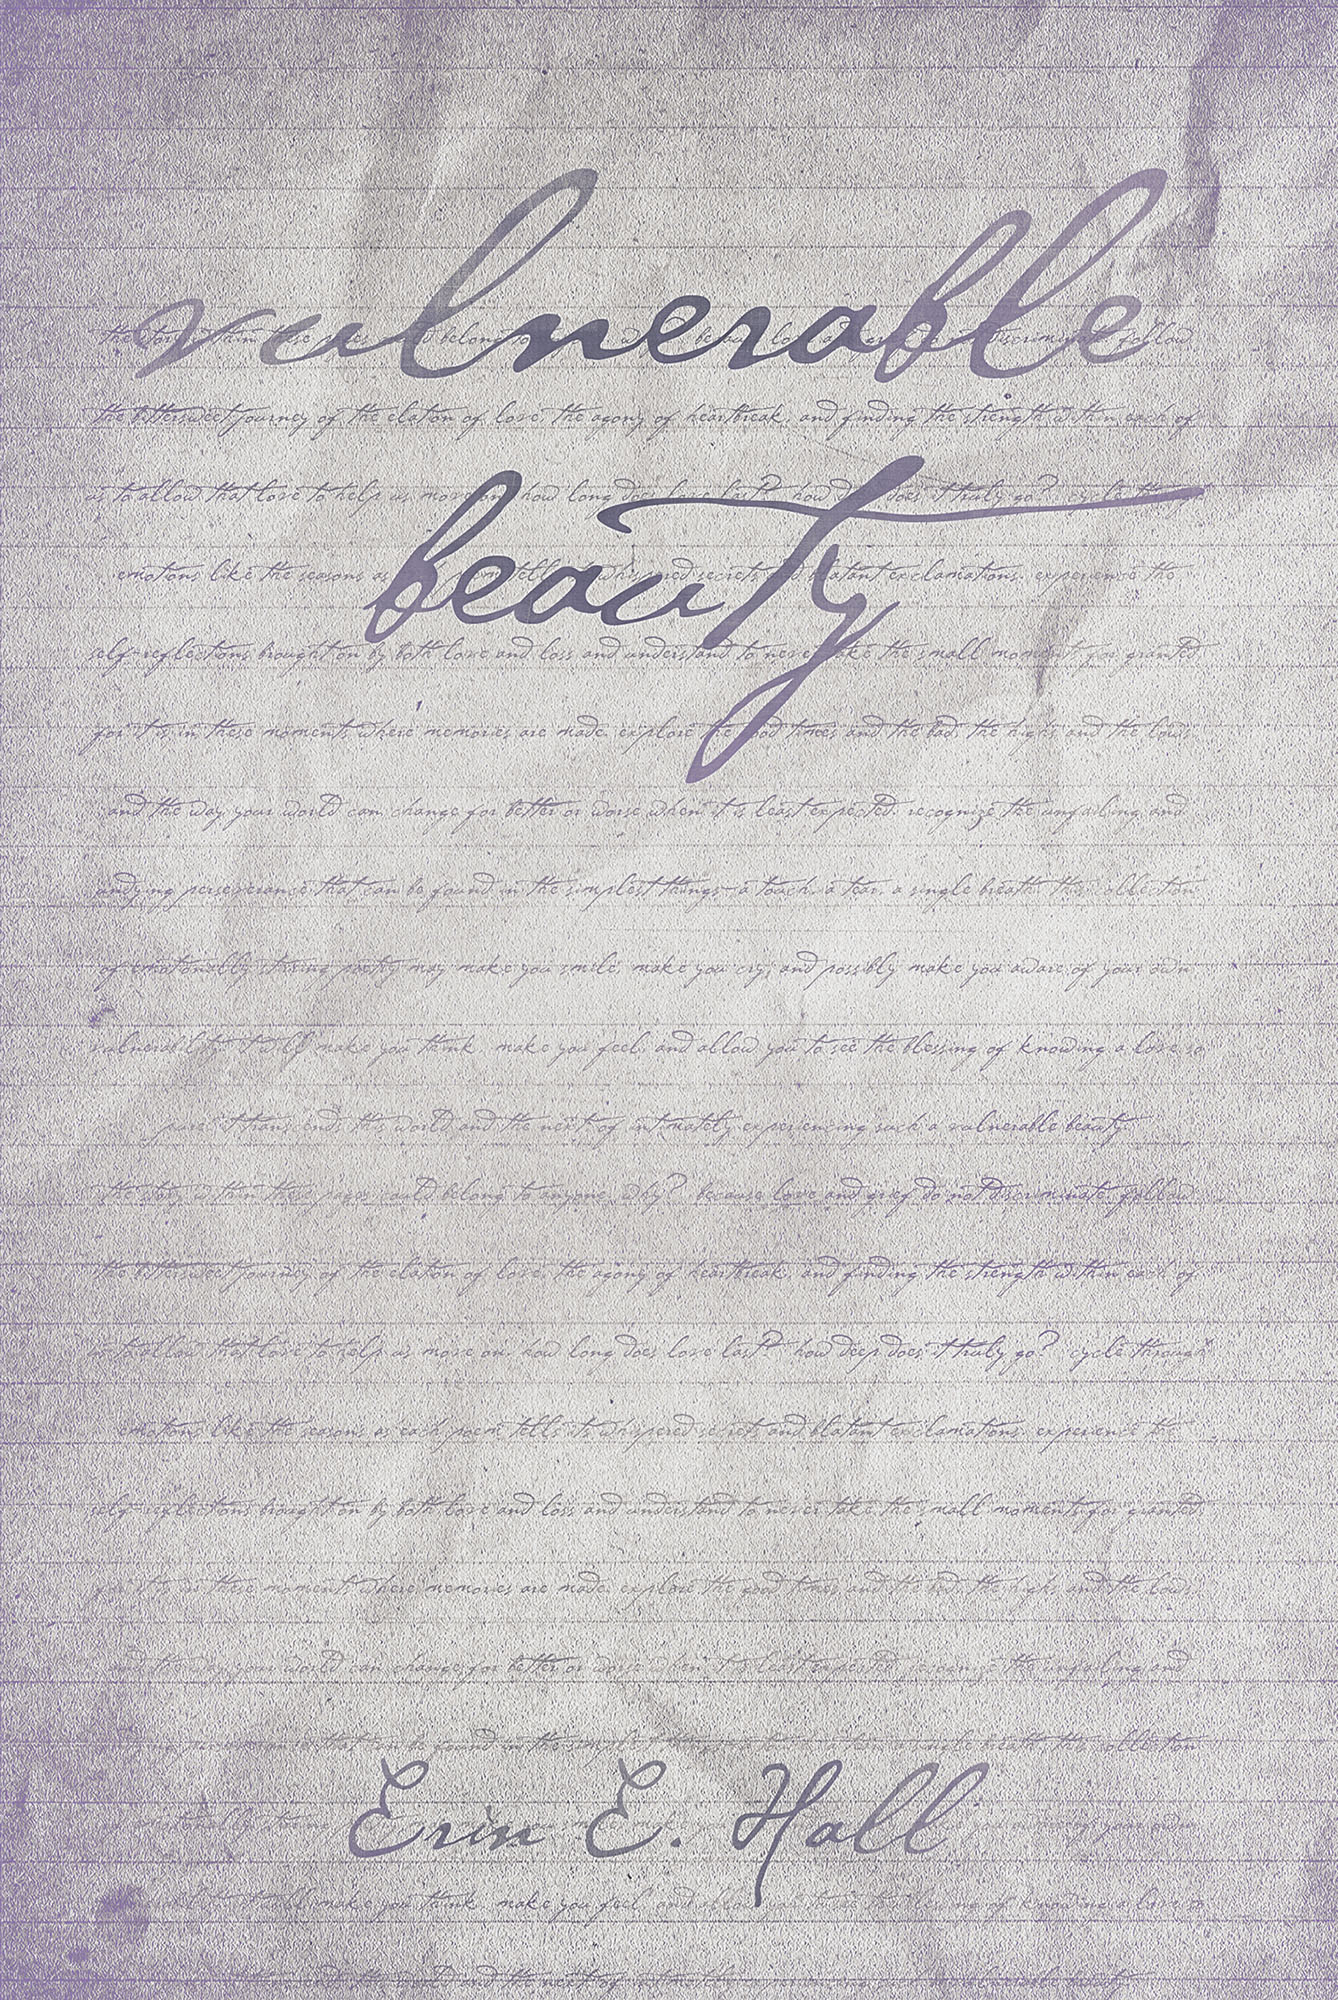 vulnerable
the story within these belong be lo discriminate. follow
the bittersweet journey of the elation of love, the agony of heartbreak, and finding the strength within each of
us to allow that love to help us move on. how long does love last? how deep does it truly go? cycle
beauty
emotions like the seasons as poem tells whispered secrets and blatant exclamations. experience the
self-reflections brought on by both love and loss and understand to never take the small moments for granted
for it is in these moments where memories are made. explore the good times and the bad, the highs and the lows,
and the way your world can change for better or worse when it is least expected. recognize the unfailing and
undying perseverance that can be found in the simplest things-a touch, a tear, a single breath. this collection
of emotionally stirring poetry may make you smile, make you cry, and possibly make you aware of your own
vulnerability. it will make you think, make you feel, and allow you to see the blessing of knowing a love so
pure it transcends this world and the next, of intimately experiencing such a vulnerable beauty.
the story within these pages could belong to anyone. why? because love and grief do not discriminate. follow
the bittersweet journey of the elation of love, the agony of heartbreak, and finding the strength within each of
us to allow that love to help us move on. how long does love last? how deep does it truly go? cycle through
emotions like the seasons as each poem tells its whispered secrets and blatant exclamations. experience the
self-reflections brought on by both love and loss and understand to never take the small moments for granted
for it is in these moments where memories are made. explore the good times and the bad, the highs and the lows,
and the way your world can change for better or worse when it is least expected. recognize the unfailing and
that can be found in the simplest breath. this collection
Erin E. Hall
will make you think, make you feel, and of knowing a love so
and the next, of intimately vulnerable beauty.